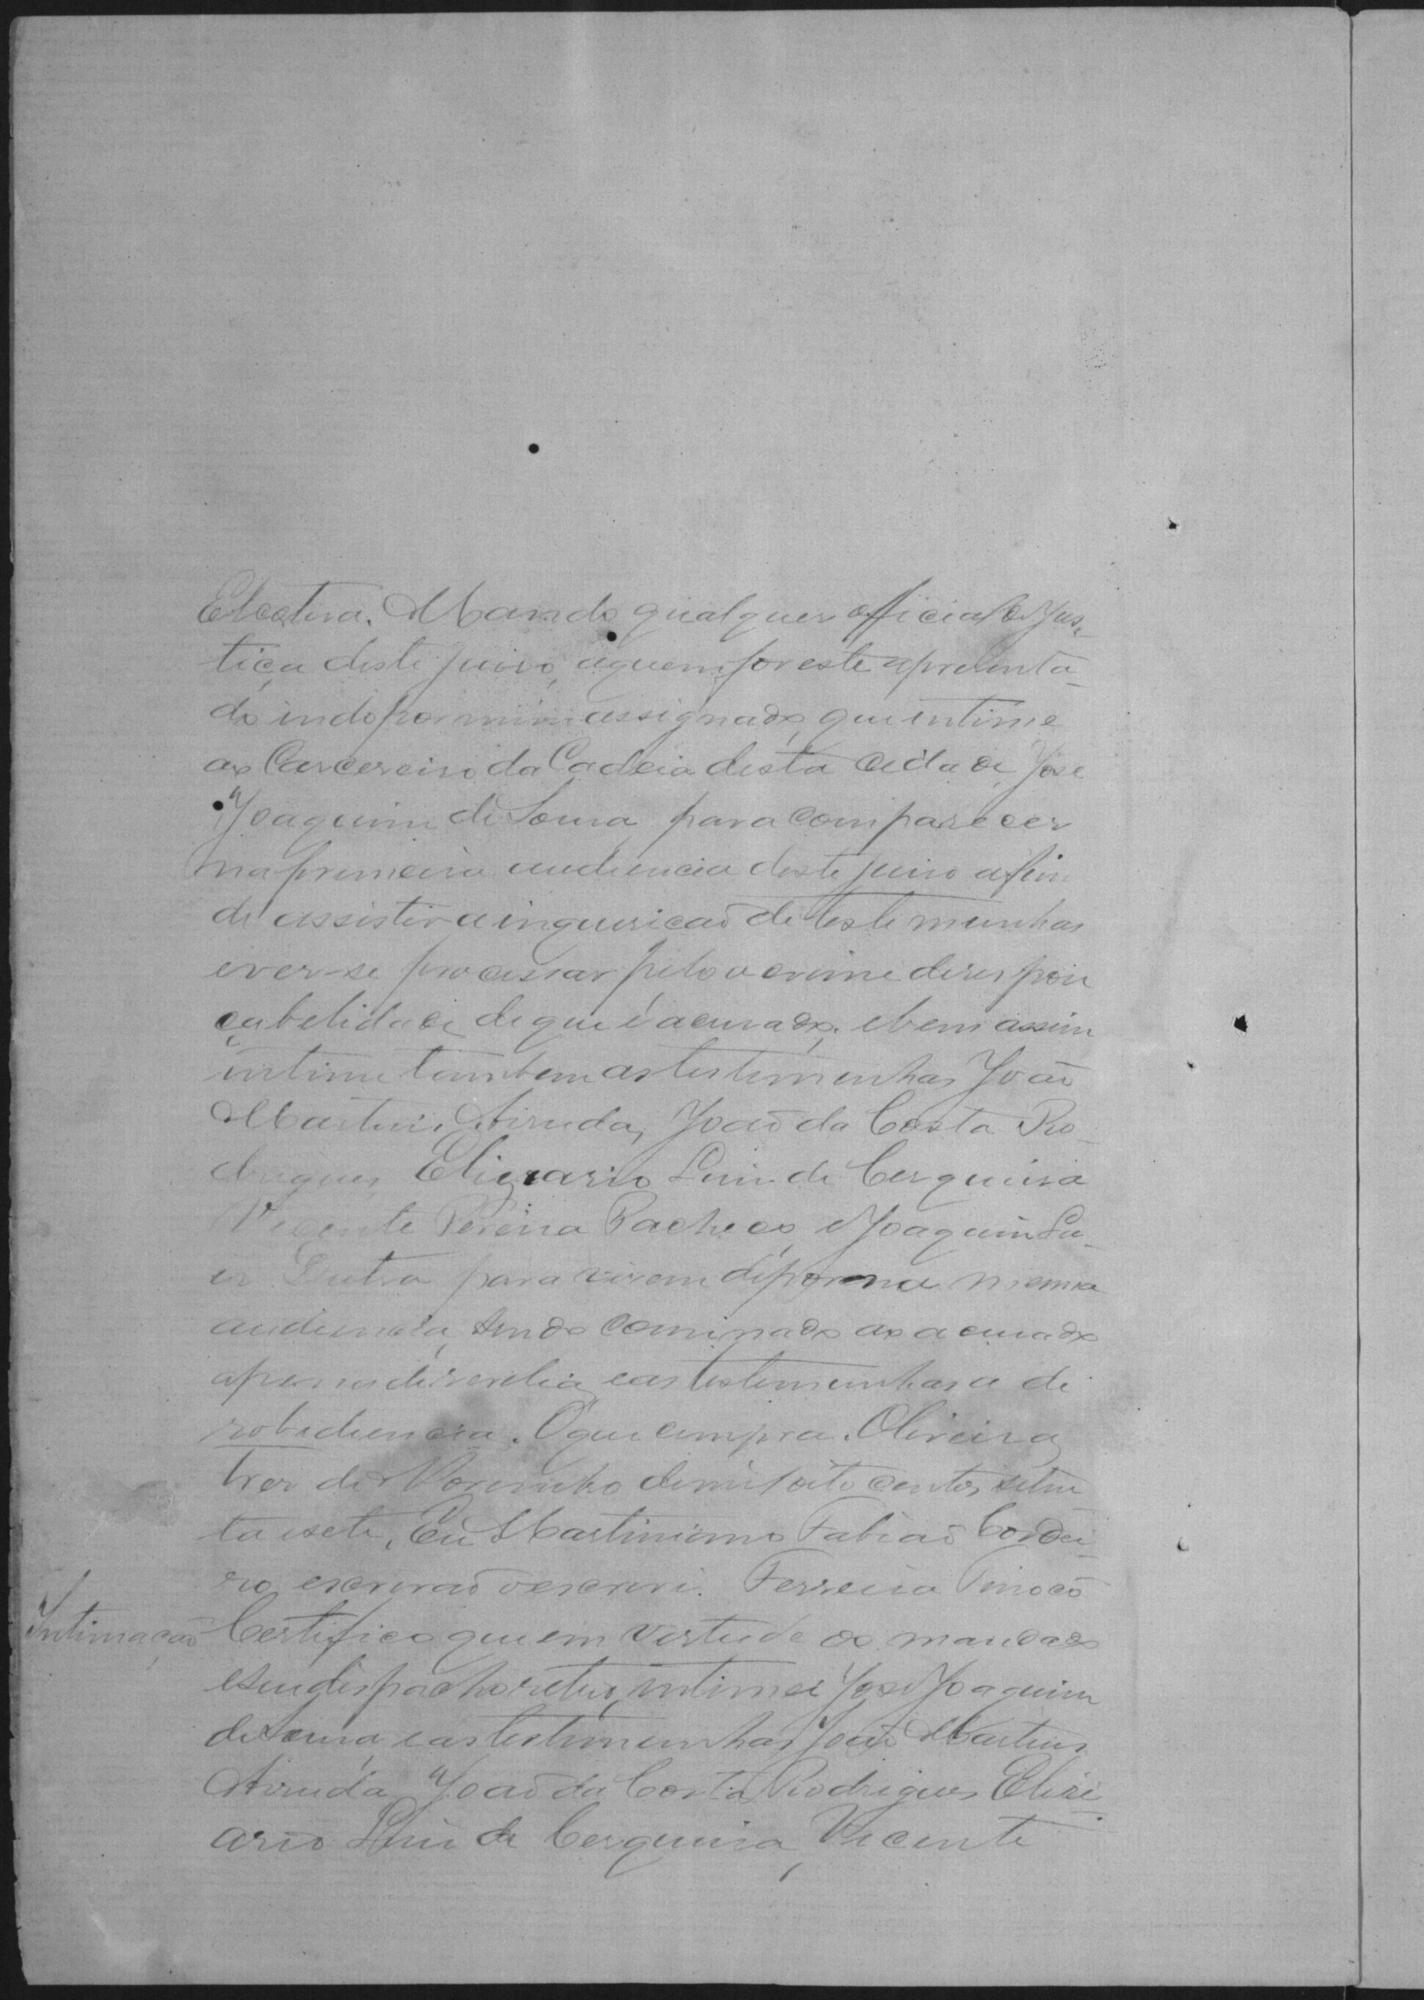 Etcetera. Mando qualquer official de Jus-
tiça deste juiso, aquem for este apresenta-
do indo por mim assignado, que intime
ao Carcereiro da Cadeia desta cidade, José
Joaquim de Sousa para comparecer
na primeira audiencia deste juiso afim
de assistir a inquirição de testemunhas
ever-se processar pelo o crime de respon
çabelidade de que é acusado, ebem assim
intime tambem as testemunhas João
Martins Arruda, João da Costa Ro-
drigues, Elizario Luis de Cerqueira
Vicente Pereira Pacheco, e Joaquim
Dutra para virem depor na mesma
audiencia, sendo cominado ao acusado
apena de revelia, eas testemunhas a de
sobediencia. O que cumpra. Oliveira
tres de Novembro de mil oito centos, seten
ta esete, Eu Martiniano Fabião Cordei-
ro, escrivão o escrevi. Ferreira Tinoco
Intimação Certifico que em vertude do mandado
eseu despacho retro, intimei José Joaquim
de Sousa, eas testemunhas João Martins
Arruda, João da Costa Rodrigues, Elizi
ario Luis de Cerqueira, Vicente